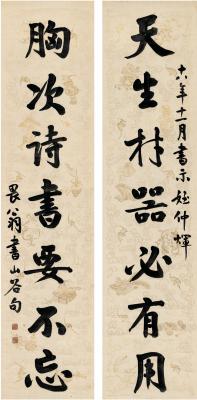 天生材器必有用
十六年十一月書示姪仲輝
胸次詩書要不忘
畏翁書山谷句